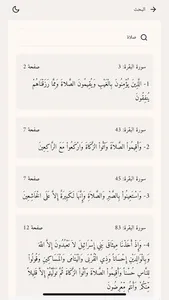 البحث
صلاة
سورة البقرة: 3 صفحة 2
1- الَّذِينَ يُؤْمِنُونَ بِالْغَيْبِ وَيُقِيمُونَ الصَّلَاةَ وَمِمَّا رَزَقْنَاهُمْ
يُنفِقُونَ
سورة البقرة: 43 صفحة 7
2- وَأَقِيمُوا الصَّلَاةَ وَآتُوا الزَّكَاةَ وَارْكَعُوا مَعَ الرَّاكِعِينَ
سورة البقرة: 45 صفحة 7
3- وَاسْتَعِينُوا بِالصَّبْرِ وَالصَّلَاةِ وَإِنَّهَا لَكَبِيرَةٌ إِلَّا عَلَى الْخَاشِعِينَ
سورة البقرة: 83 صفحة 12
4- وَإِذْ أَخَذْنَا مِيثَاقَ بَنِي إِسْرَائِيلَ لَا تَعْبُدُونَ إِلَّا اللَّهَ
وَبِالْوَالِدَيْنِ إِحْسَانًا وَذِي الْقُرْبَىٰ وَالْيَتَامَىٰ وَالْمَسَاكِينِ وَقُولُوا
لِلنَّاسِ حُسْنًا وَأَقِيمُوا الصَّلَاةَ وَآتُوا الزَّكَاةَ ثُمَّ تَوَلَّيْتُمْ إِلَّا قَلِيلًا
مِّنكُمْ وَأَنتُم مُّعْرِضُونَ